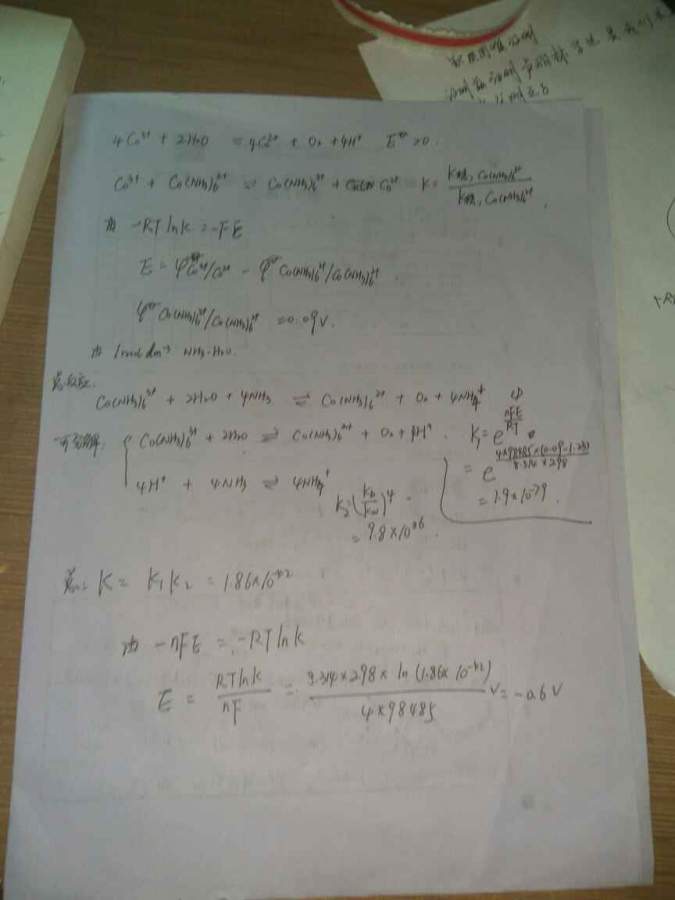 4Co³⁺ + 2H₂O = 4Co²⁺ + O₂ + 4H⁺ E⊖>0.
Co³⁺ + Co(NH₃)₆²⁺ ⇌ Co(NH₃)₆³⁺ + Co²⁺ K = K稳, Co(NH₃)₆³⁺ / K稳, Co(NH₃)₆²⁺
由 -RT lnK = -FE
E = φ⊖Co³⁺/Co²⁺ - φ⊖Co(NH₃)₆³⁺/Co(NH₃)₆²⁺
φ⊖Co(NH₃)₆³⁺/Co(NH₃)₆²⁺ = 0.09V.
由 1mol·dm⁻³ NH₃·H₂O.
总反应:
Co(NH₃)₆³⁺ + 2H₂O + 4NH₃ ⇌ Co(NH₃)₆²⁺ + O₂ + 4NH₄⁺ (1)
可分解: { Co(NH₃)₆³⁺ + 2H₂O ⇌ Co(NH₃)₆²⁺ + O₂ + 4H⁺. K₁ = e^(nFE/RT)
= e^(4×98485×(0.09-1.23)/8.314×298)
= 1.9×10⁻⁷⁹.
4H⁺ + 4NH₃ ⇌ 4NH₄⁺
K₂ = (Kb/Kw)⁴
= 9.8×10³⁶.
K = K₁K₂ = 1.86×10⁻⁴²
由 -nFE = -RT lnK
E = RT lnK / nF = 8.314×298×ln(1.86×10⁻⁴²) / 4×98485 V = -0.6V